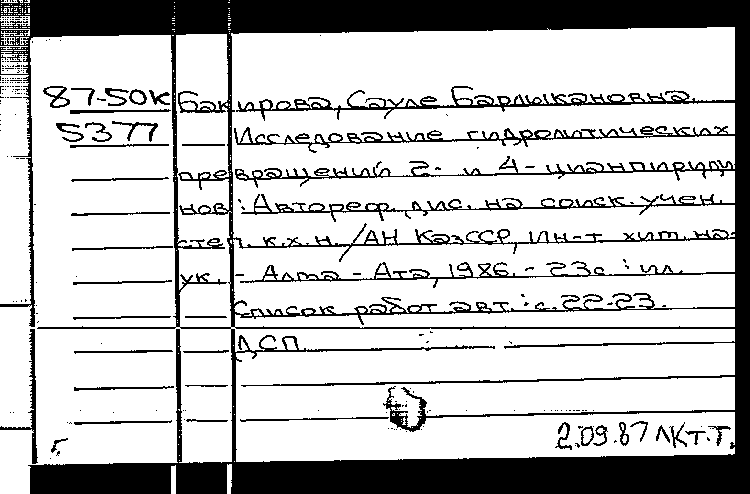 87-50к Бакирова, Сауле Барлыкановна.
5377 Исследование гидролитических
превращений 2- и 4-цианпириди
нов : Автореф. дис. на соиск. учен.
степ. к.х.н. / АН КазССР, Ин-т хим. на-
ук. - Алма - Ата, 1986. - 23с. : ил.
Список работ авт. : с. 22-23.
ДСП
2.09.87 ЛКТ.Т.